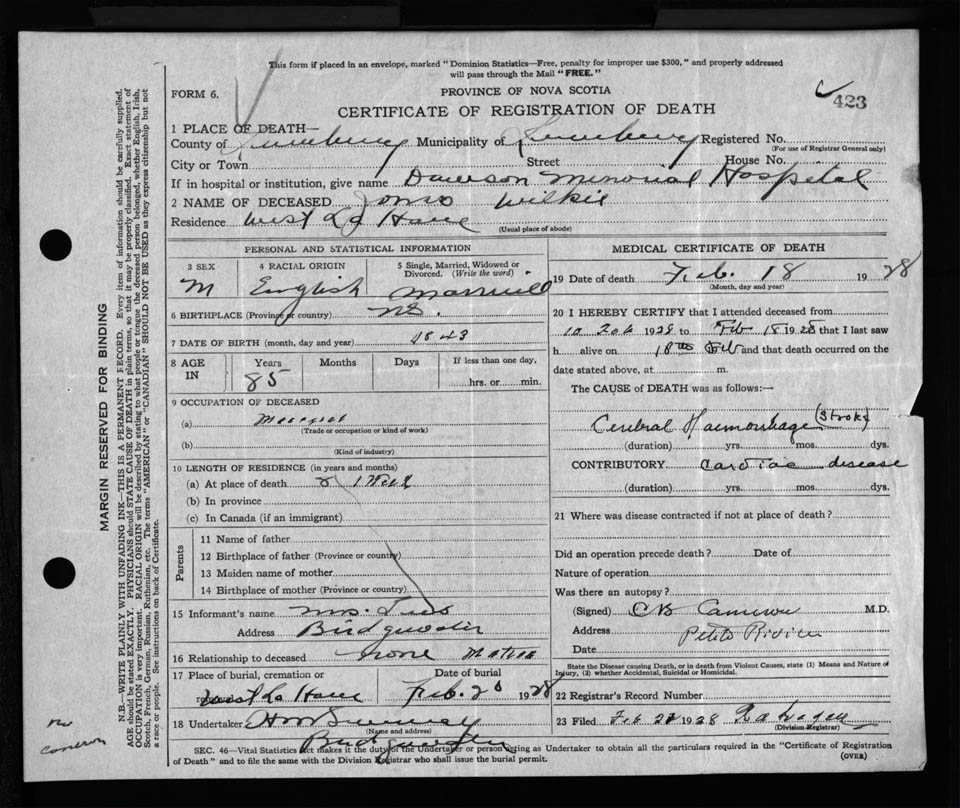 This form if placed in an envelope, marked " Dominion Statistics—Free, penalty for improper use $300, " and properly addressed
will pass through the Mail "FREE."
FORM 6.
PROVINCE OF NOVA SCOTIA
423
CERTIFICATE OF REGISTRATION OF DEATH
1 PLACE OF DEATH—
County of Lunenburg Municipality of Lunenburg Registered No.
(For use of Registrar General only)
City or Town Street House No.
If in hospital or institution, give name Dawson Memorial Hospital
2 NAME OF DECEASED Wilkie
Residence West La Have
(Usual place of abode)
PERSONAL AND STATISTICAL INFORMATION
3 SEX 4 RACIAL ORIGIN 5 Single, Married, Widowed or Divorced. (Write the word)
M English Married
6 BIRTHPLACE (Province or country) NS.
7 DATE OF BIRTH (month, day and year) 1843
8 AGE IN Years Months Days If less than one day,
85 hrs. or min.
9 OCCUPATION OF DECEASED
(a)
(Trade or occupation or kind of work)
(b)
(Kind of industry)
10 LENGTH OF RESIDENCE (in years and months)
(a) At place of death 1 Week
(b) In province
(c) In Canada (if an immigrant)
Parents
11 Name of father
12 Birthplace of father (Province or country)
13 Maiden name of mother
14 Birthplace of mother (Province or country)
15 Informant's name Mrs.
Address Bridgewater
16 Relationship to deceased none Matron
17 Place of burial, cremation or Date of burial
West La Have Feb. 20 1928
18 Undertaker
(Name and address)
Bridgewater
MEDICAL CERTIFICATE OF DEATH
19 Date of death Feb. 18 1928
(Month, day and year)
20 I HEREBY CERTIFY that I attended deceased from
10 Feb 1928 to Feb 18 1928 that I last saw
h alive on 18th Feb and that death occurred on the
date stated above, at m.
The CAUSE of DEATH was as follows:—
Cerebral Haemorrhage (Stroke)
(duration) yrs. mos. dys.
CONTRIBUTORY cardiac disease
(duration) yrs. mos. dys.
21 Where was disease contracted if not at place of death?
Did an operation precede death? Date of
Nature of operation
Was there an autopsy?
(Signed) Cameron M.D.
Address Petite Riviere
Date
State the Disease causing Death, or in death from Violent Causes, state (1) Means and Nature of
Injury, (2) whether Accidental, Suicidal or Homicidal.
22 Registrar's Record Number
23 Filed Feb 1928
(Division Registrar)
SEC. 46—Vital Statistics Act makes it the duty of the Undertaker or person acting as Undertaker to obtain all the particulars required in the "Certificate of Registration
of Death" and to file the same with the Division Registrar who shall issue the burial permit. (OVER)
MARGIN RESERVED FOR BINDING
N.B.—WRITE PLAINLY WITH UNFADING INK—THIS IS A PERMANENT RECORD. Every item of information should be carefully supplied.
AGE should be stated EXACTLY. PHYSICIANS should STATE CAUSE OF DEATH in plain terms, so that it may be properly classified. Exact statement of
OCCUPATION is very important. RACIAL ORIGIN will be described by stating to what people or tongue the deceased person belonged, whether English, Irish,
Scotch, French, German, Russian, Ruthenian, etc. The terms "AMERICAN" or "CANADIAN" SHOULD NOT BE USED as they express citizenship but not
a race or people. See instructions on back of Certificate.